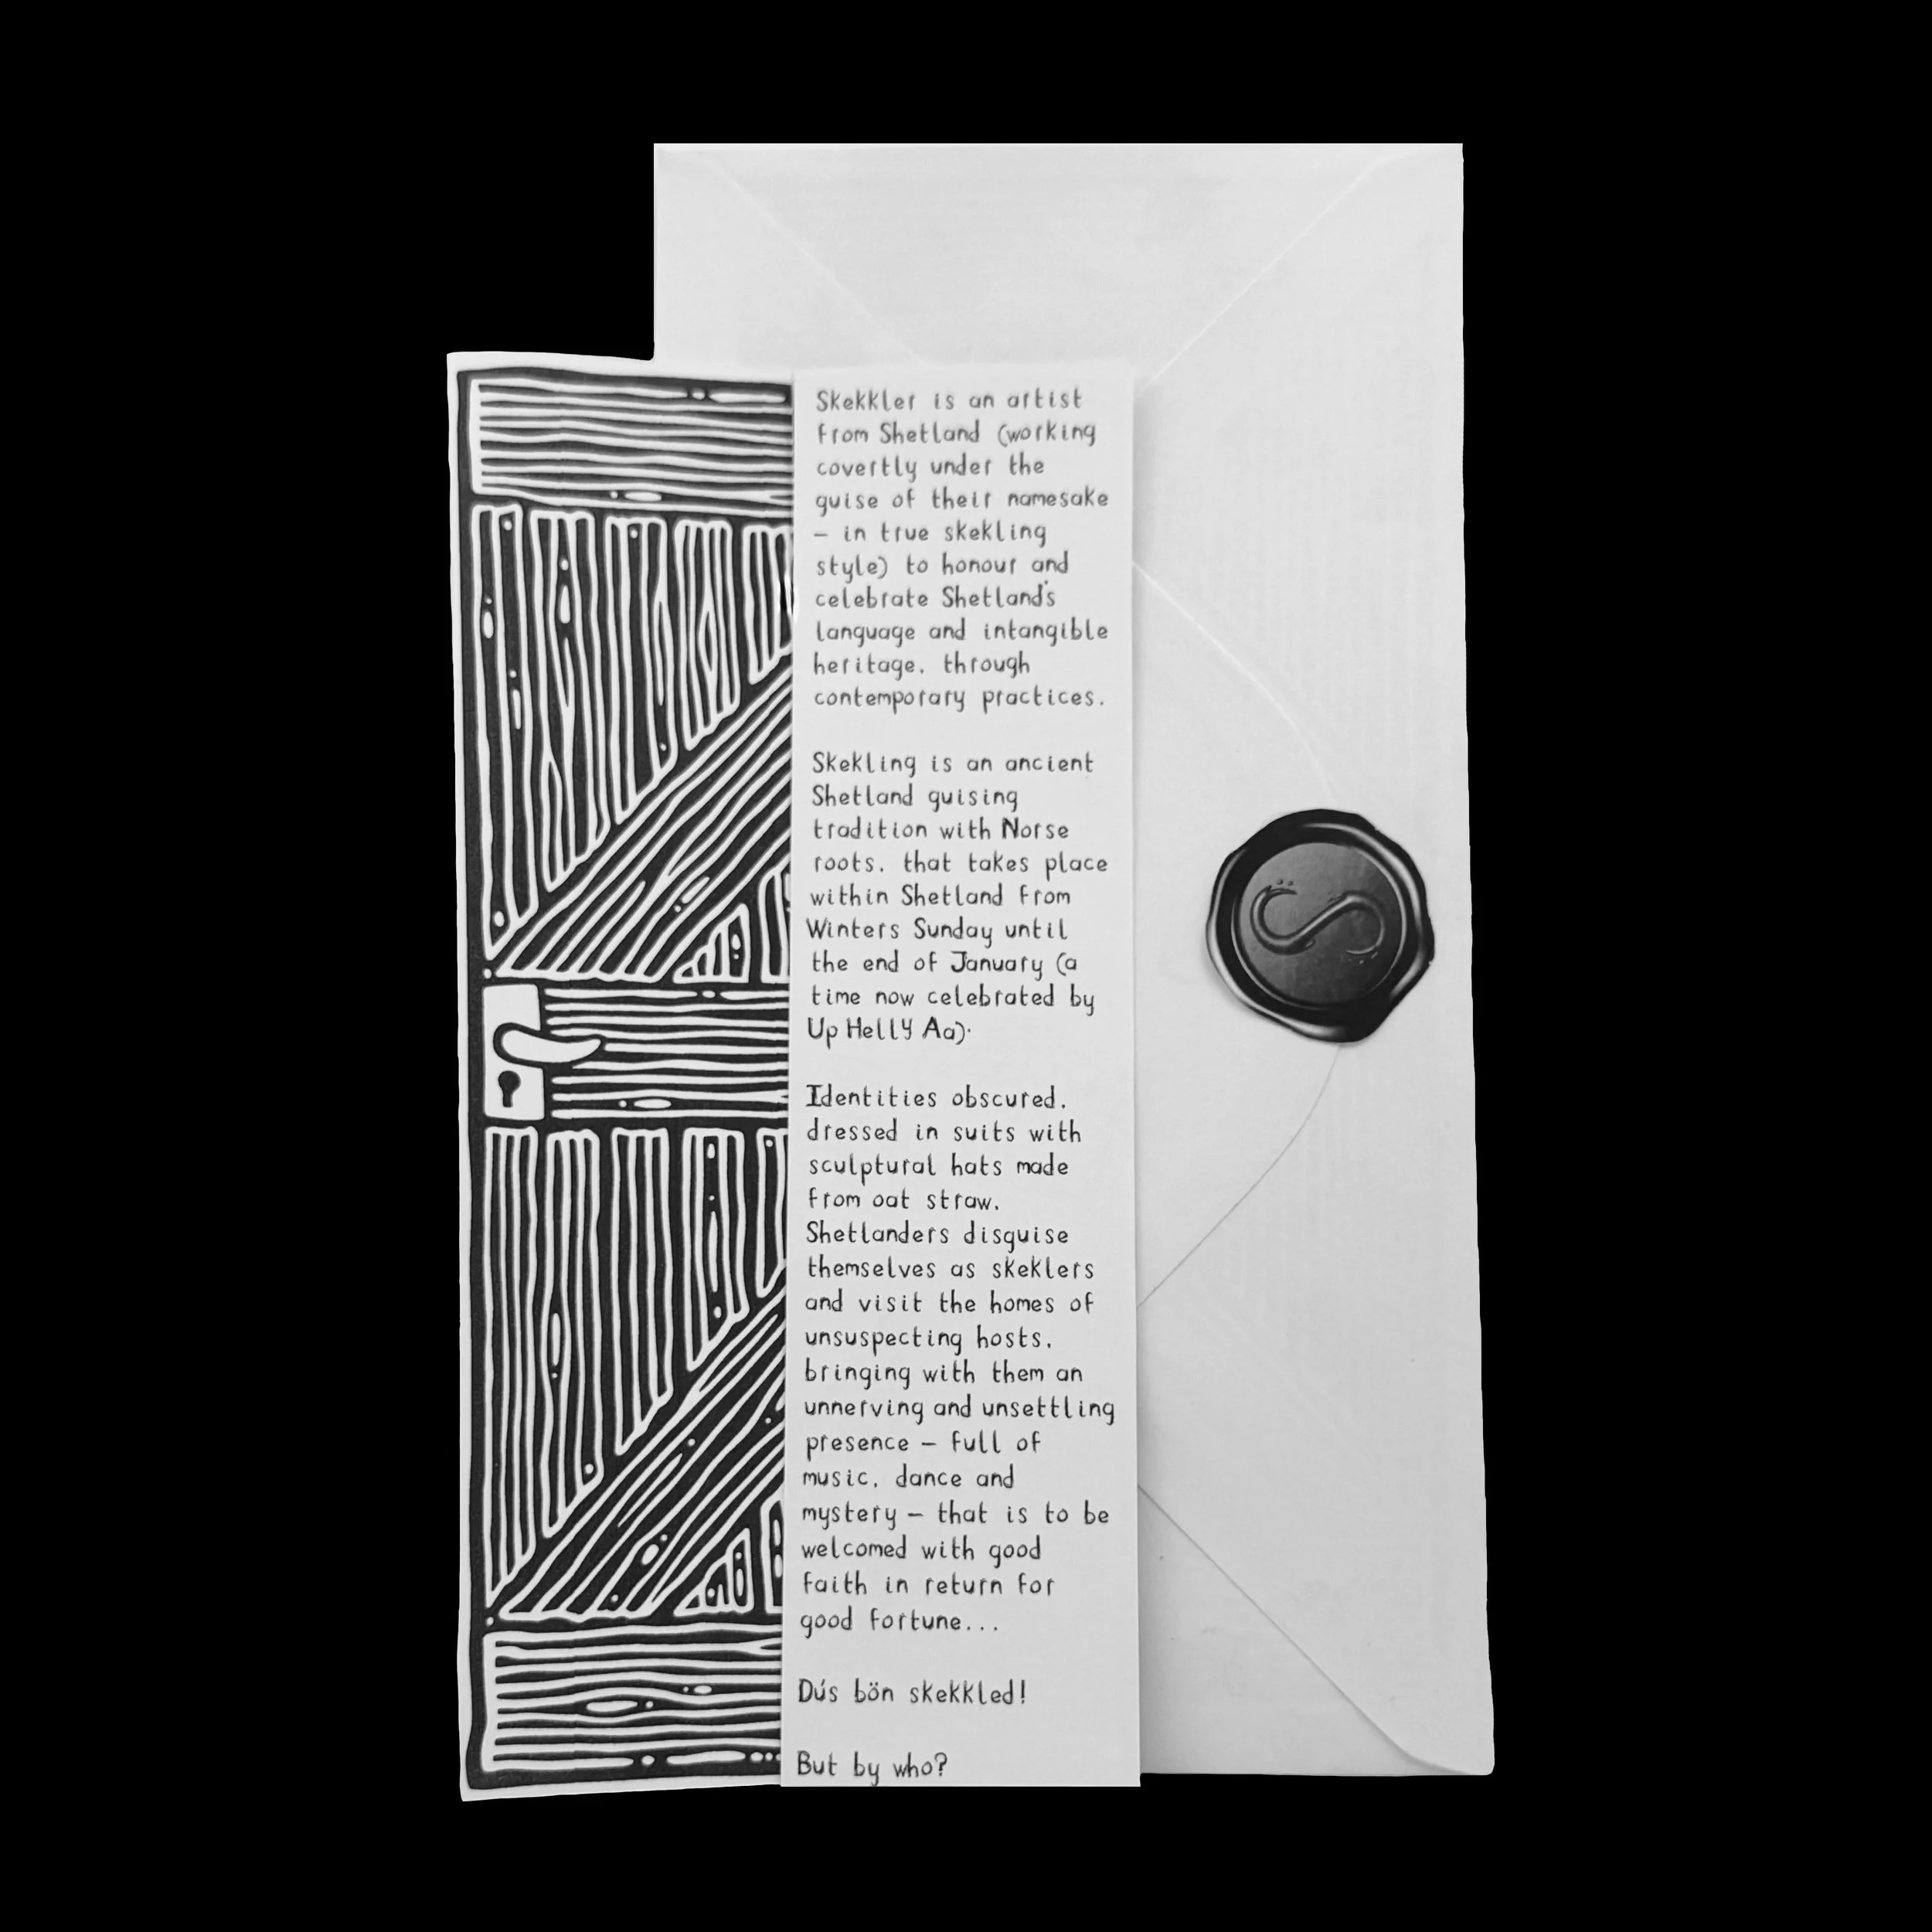 Skekkler is an artist
from Shetland (working
covertly under the
guise of their namesake
– in true skekling
style) to honour and
celebrate Shetland's
language and intangible
heritage, through
contemporary practices.
Skekling is an ancient
Shetland guising
tradition with Norse
roots, that takes place
within Shetland from
Winters Sunday until
the end of January (a
time now celebrated by
Up Helly Aa).
Identities obscured,
dressed in suits with
sculptural hats made
from oat straw,
Shetlanders disguise
themselves as skeklers
and visit the homes of
unsuspecting hosts,
bringing with them an
unnerving and unsettling
presence – full of
music, dance and
mystery – that is to be
welcomed with good
faith in return for
good fortune...
Dús bön skekkled!
But by who?